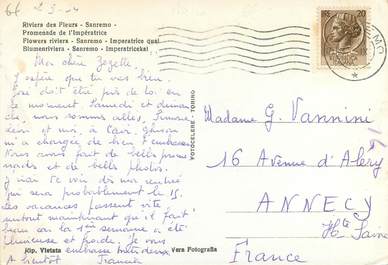 Riviera dei Fleurs - Sanremo -
Promenade de l'Impératrice
Flowers riviera - Sanremo - Imperatrice quai
Blumenriviera - Sanremo - Imperatricekai
Ma chère Zezelle.
J'espère que tu vas bien.
doit être près de toi en
ce moment Samedi et diman
che, nous sommes allés, Simone
et moi, à
m'a chargée de bien t'embrasser
Nous avons fait de belles prome
nades et de belles photos.
ma rentrée
qui sera probablement le 15.
Les vacances passent vite
surtout maintenant qu'il fait
beau car la 1ère semaine a été
pluvieuse et froide. Je vous
embrasse
A bientôt Francia
Rip. Vietata
Vera Fotografia
FOTOCELERE - TORINO
20
Madame G. Vannini
16 Avenue d'Aléry
ANNECY
Hte Savoie
France